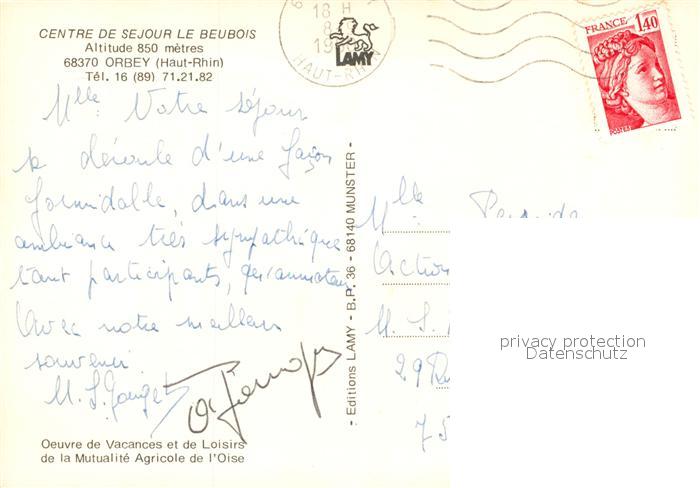 CENTRE DE SEJOUR LE BEUBOIS
Altitude 850 mètres
68370 ORBEY (Haut-Rhin)
Tél. 16 (89) 71.21.82
18 H
8
HAUT-RHIN
LAMY
FRANCE 1,40
POSTES
Mlle Notre séjour
se déroule d'une façon
formidable, dans une
ambiance très sympathique
tant participants, qu'animateurs
Avec notre meilleur
souvenir.
M. S.
Oeuvre de Vacances et de Loisirs
de la Mutualité Agricole de l'Oise
- Editions LAMY - B.P. 36 - 68140 MUNSTER -
Mlle
Action
M. S.
29 Ru
75
privacy protection
Datenschutz